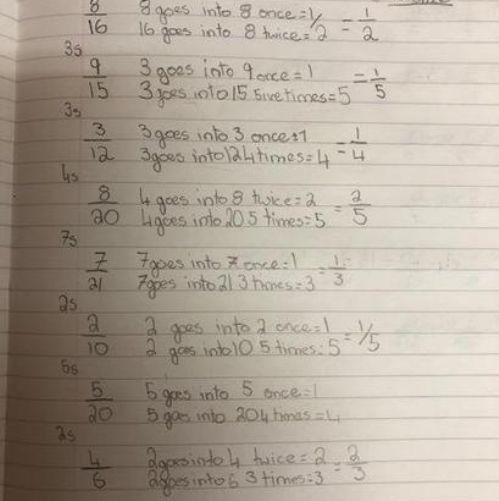 8 8 goes into 8 once = 1/ = 1
16 16 goes into 8 twice = 2 2
3s
9 3 goes into 9 once = 1 = 1
15 3 goes into 15 five times = 5 5
3s
3 3 goes into 3 once = 1 = 1
12 3 goes into 12 4 times = 4 4
4s
8 4 goes into 8 twice = 2 = 2
20 4 goes into 20 5 times = 5 5
7s
7 7 goes into 7 once = 1 = 1
21 7 goes into 21 3 times = 3 3
2s
2 2 goes into 2 once = 1 = 1/5
10 2 goes into 10 5 times = 5
5s
5 5 goes into 5 once = 1
20 5 goes into 20 4 times = 4
2s
4 2 goes into 4 twice = 2 = 2
6 2 goes into 6 3 times = 3 3